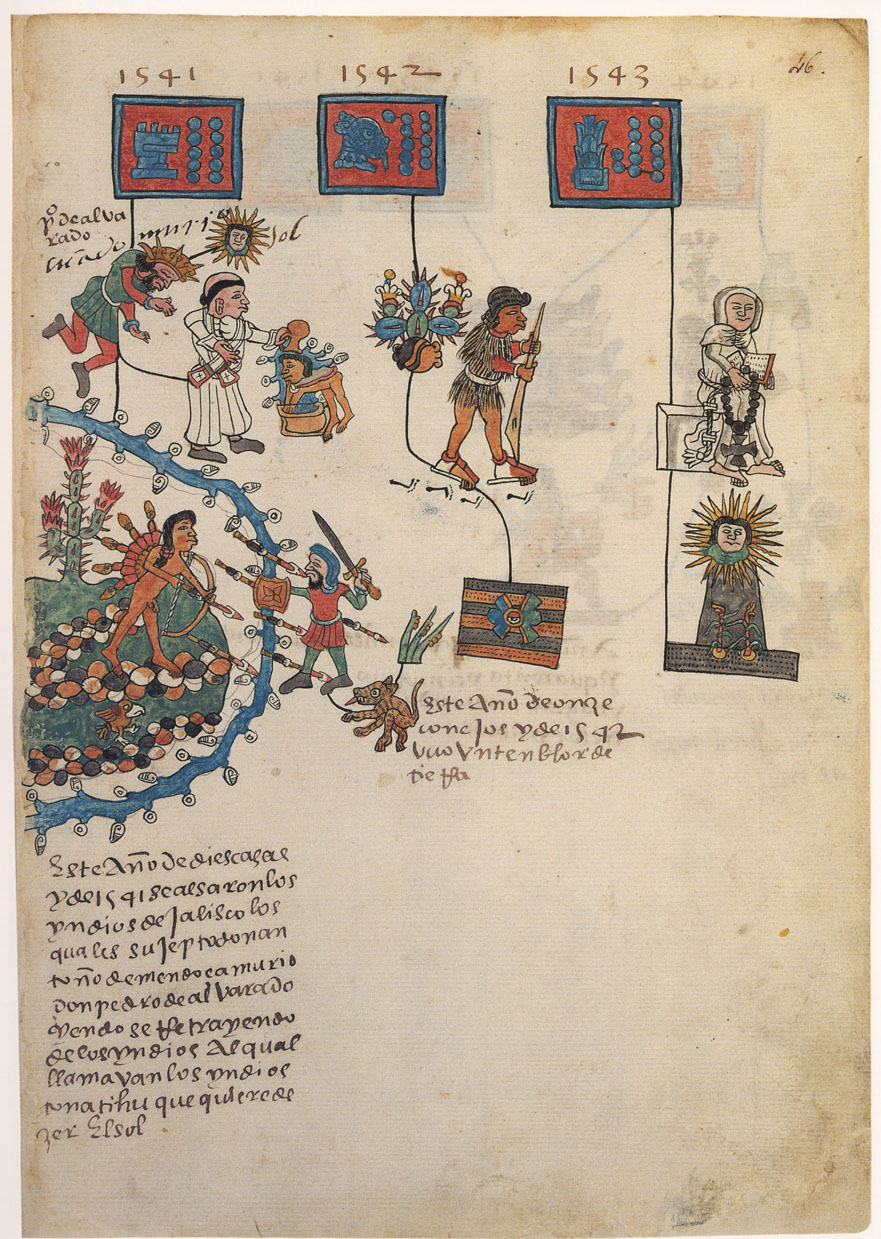 1541
1542
1543
46.
po de alva
rado
quãdo murio
sol
Este Año de onze
conejos y de 1542
vuo vn tenblor de
tieRa
Este Año de diescasas
y de 1541 se alsaron los
yndios de Jalisco los
quales sujepto don an
toño de mendoca murio
don pedro de alvarado
yendo se Retrayendo
de los yndios Al qual
llamavan los yndios
tonatihu que quiere de
zer El sol